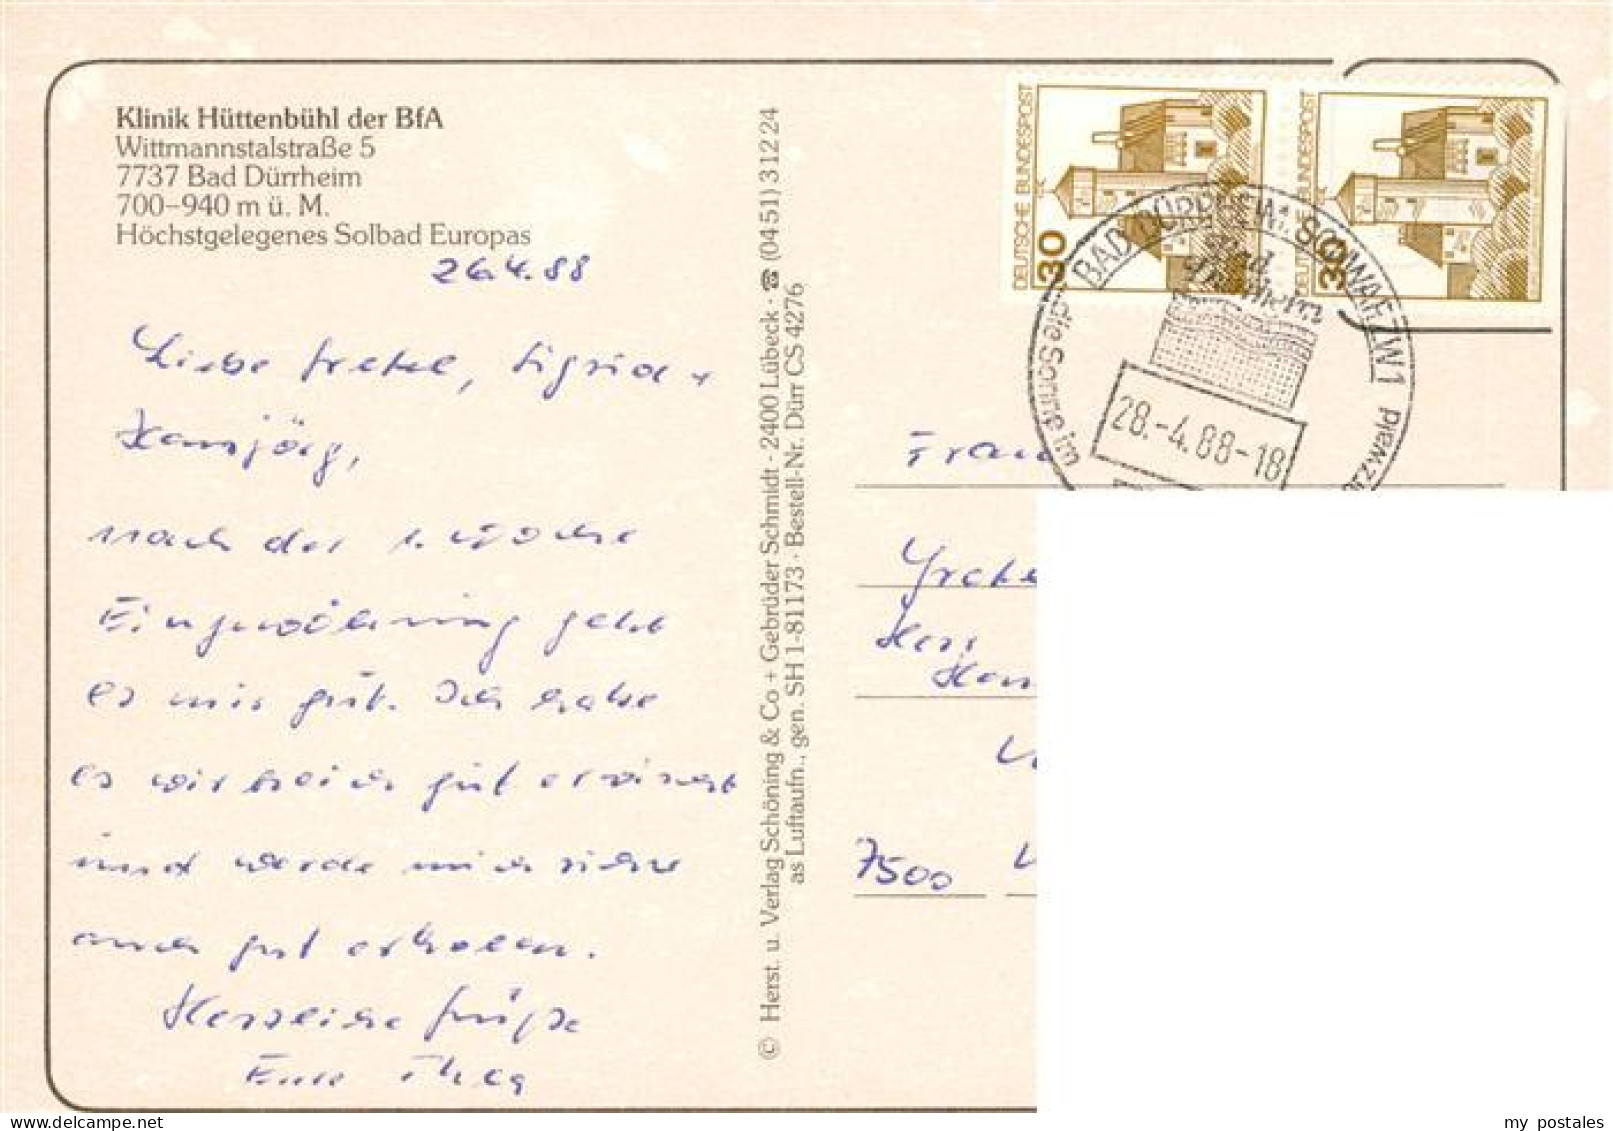 Klinik Hüttenbühl der BfA
Wittmannstalstraße 5
7737 Bad Dürrheim
700-940 m ü. M.
Höchstgelegenes Solbad Europas
26.4.88
Liebe Gretel, Sigrid +
Hansjörg,
nach der 1. Woche
Eingewöhnung geht
es mir gut. Ich habe
es wirklich gut erwischt
und werde mich sicher
auch gut erholen.
Herzliche Grüße
Eure
© Herst. u. Verlag Schöning & Co + Gebrüder Schmidt · 2400 Lübeck · ☎ (0451) 31224
as Luftaufn., gen. SH 1-81173 · Bestell-Nr. Dürr CS 4276
DEUTSCHE BUNDESPOST
30
DEUTSCHE BUNDESPOST
30
BAD DÜRRHEIM, SCHWARZW 1
Bad
Dürrheim
die Sonne im
rzwald
28.-4.88-18
Frau
Grete
Herr
Han
7500
my postales